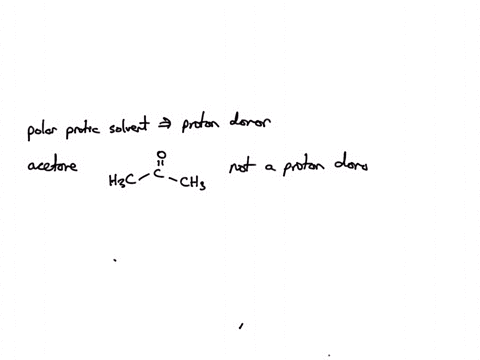 polar protic solvent ⇒ proton donor
acetone H₃C-C(=O)-CH₃ not a proton dono